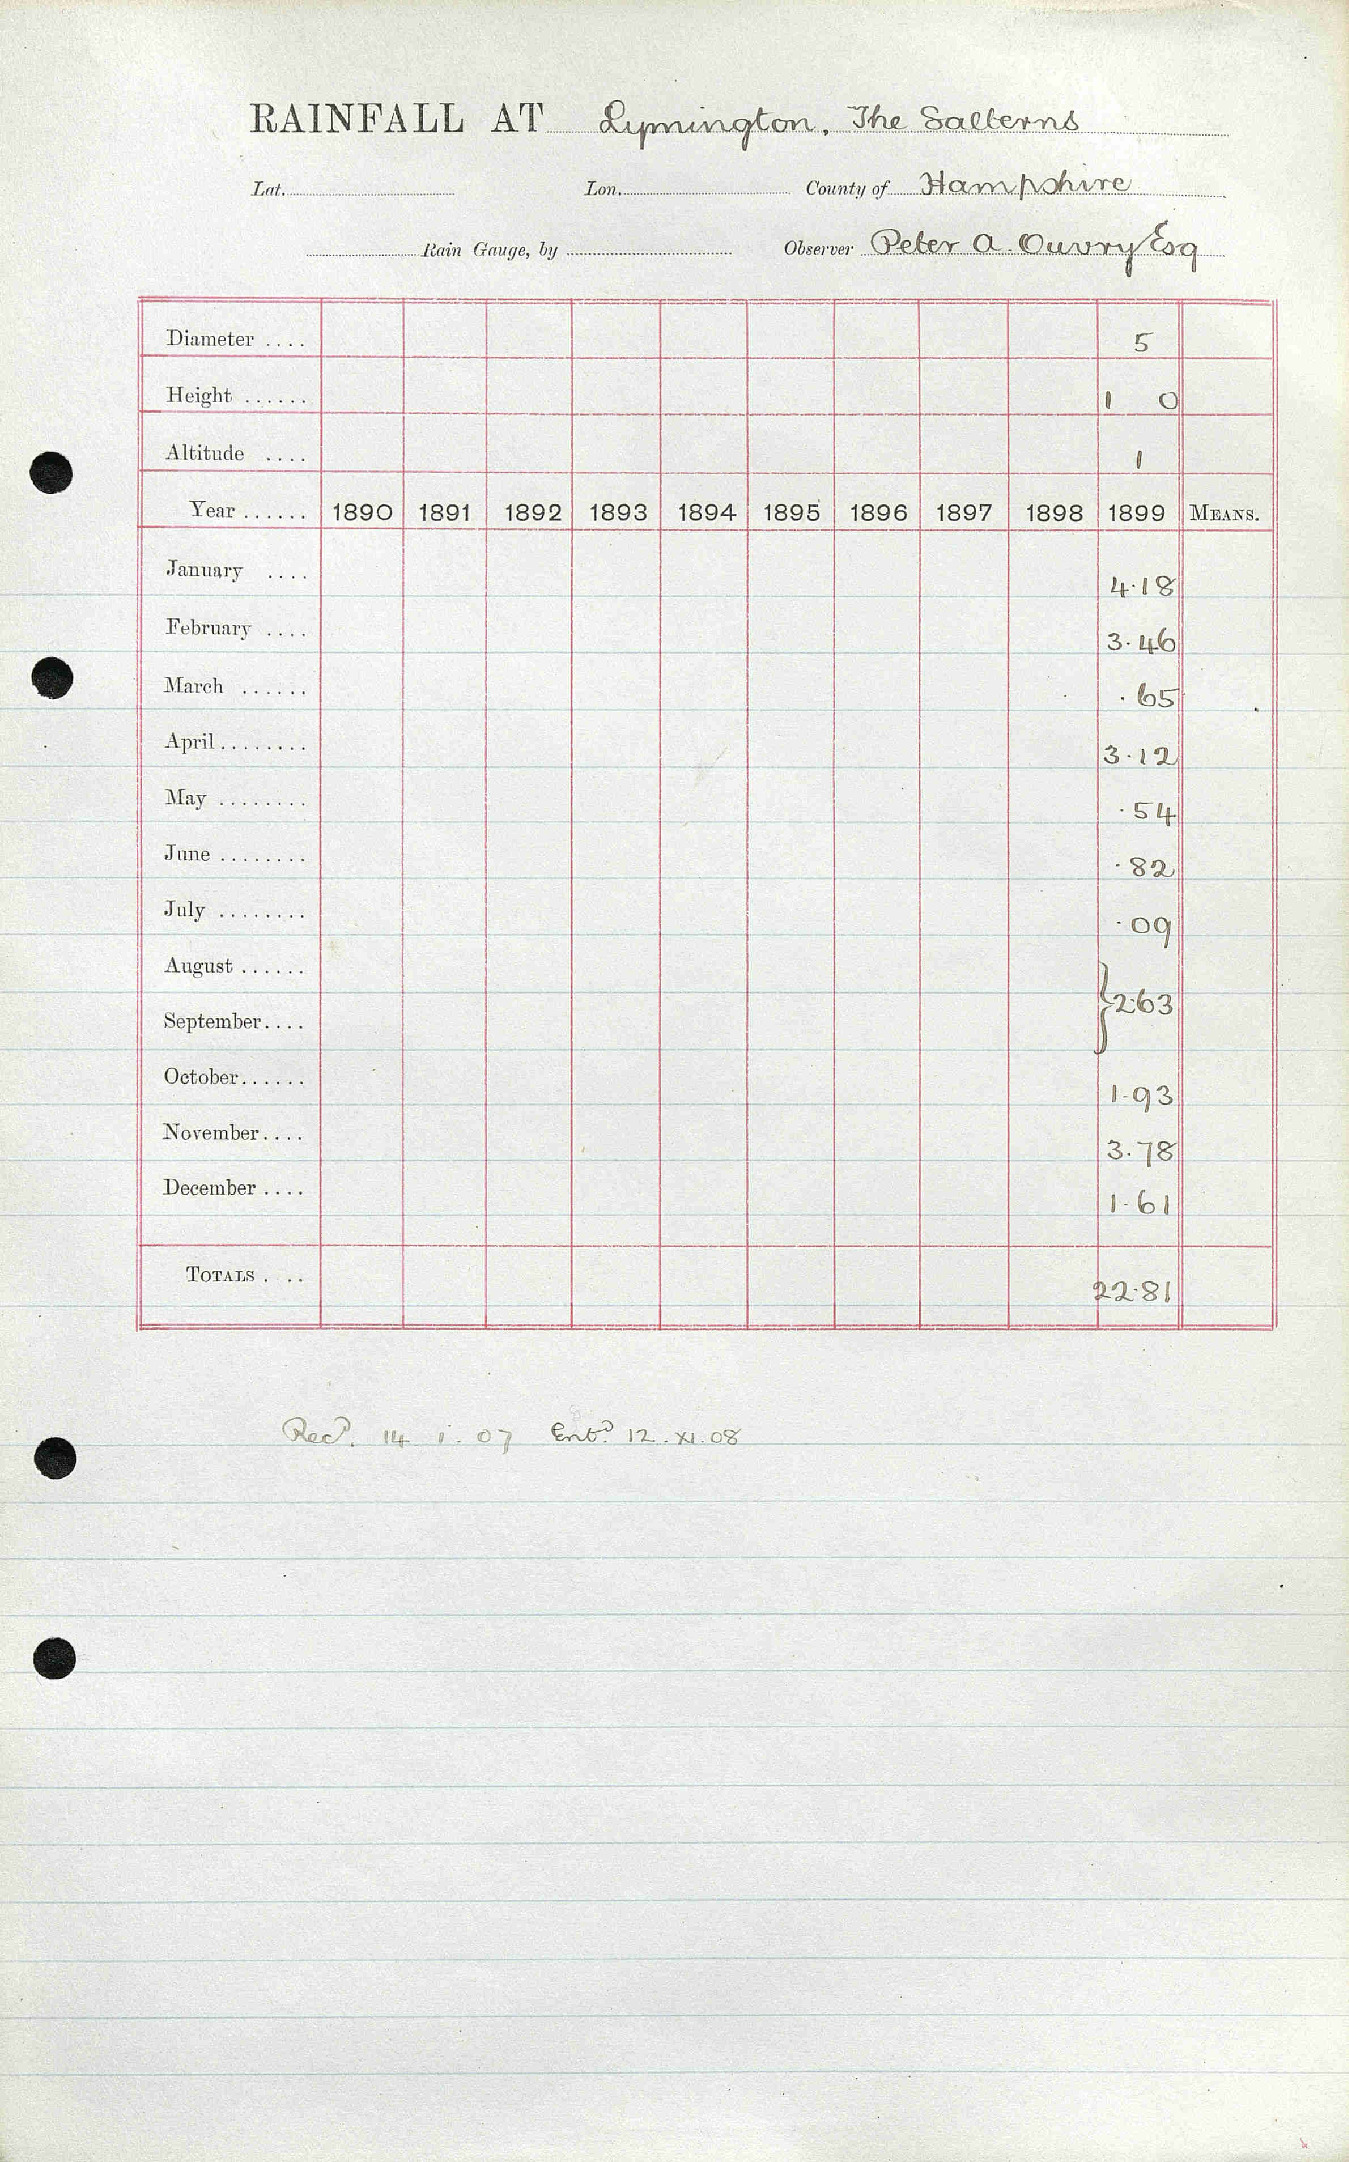 RAINFALL AT Lymington, The Salterns
Lat. Lon. County of Hampshire
Rain Gauge, by Observer Peter A. Ouvry Esq
Diameter .... 5
Height ...... 1 0
Altitude .... 1
Year ...... 1890 1891 1892 1893 1894 1895 1896 1897 1898 1899 MEANS.
January .... 4.18
February .... 3.46
March ...... .65
April........ 3.12
May ........ .54
June ........ .82
July ........ .09
August ......
September.... } 2.63
October...... 1.93
November.... 3.78
December .... 1.61
TOTALS . .. 22.81
Recd. 14 . 1 . 07 Entd. 12 . XI . 08